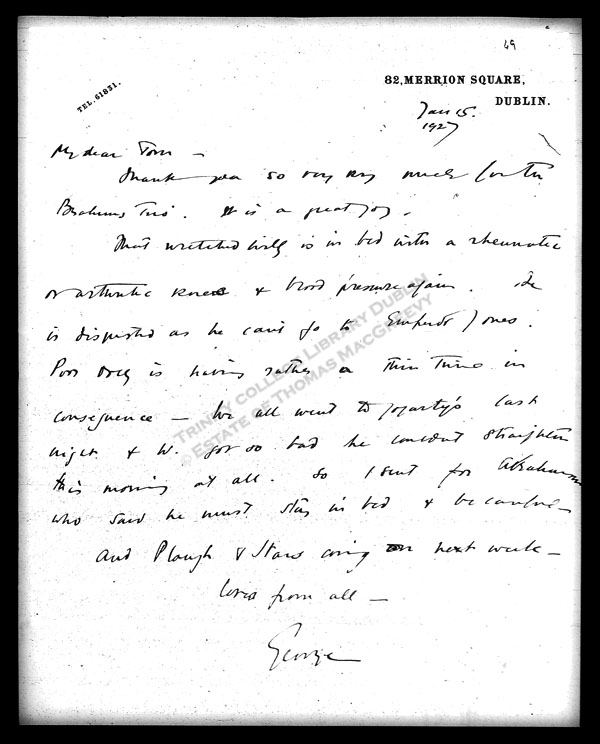 49
82, MERRION SQUARE,
DUBLIN.
TEL. 61831.
Jan 15.
1927
My dear Tom —
Thank you so very very much for the
Brahms Trio. It is a great joy.
That wretched Willy is in bed with a rheumatic
or arthritic knee & blood pressure again. He
is disgusted as he can't go to Emperor Jones.
Poor Dolly is having rather a thin time in
consequence — We all went to Gogarty's last
night & W. got so bad he couldn't straighten
this morning at all. So I sent for Abrahamson
who said he must stay in bed & be careful —
And Plough & Stars coming on next week —
Love from all —
George
TRINITY COLLEGE LIBRARY DUBLIN
© ESTATE OF THOMAS MACGREEVY